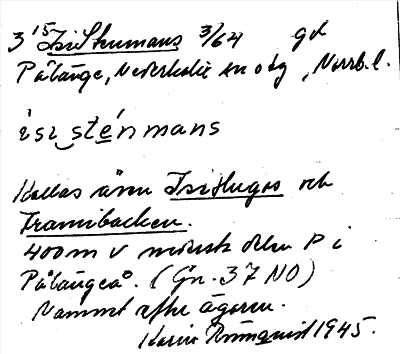 3 15 Isistenmans 3/64 gd
Pålänge, Nederkalix sn o tg, Norrb. l.
isi sténmans
Kallas även Isistugos och
Framibacken.
400 m V nordost delen P i
Pålängeå. (Gn. 37 NO)
Namnet efter ägaren.
Karin Rönnquist 1945.